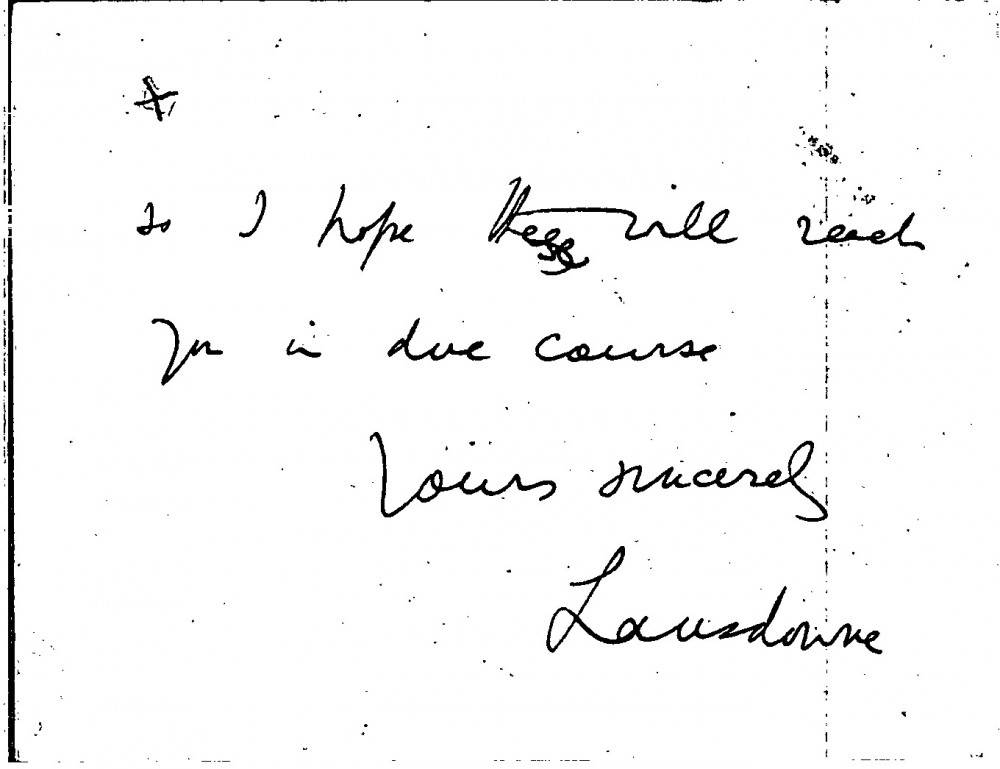 so I hope these will reach
you in due course
Yours sincerely
Lansdowne